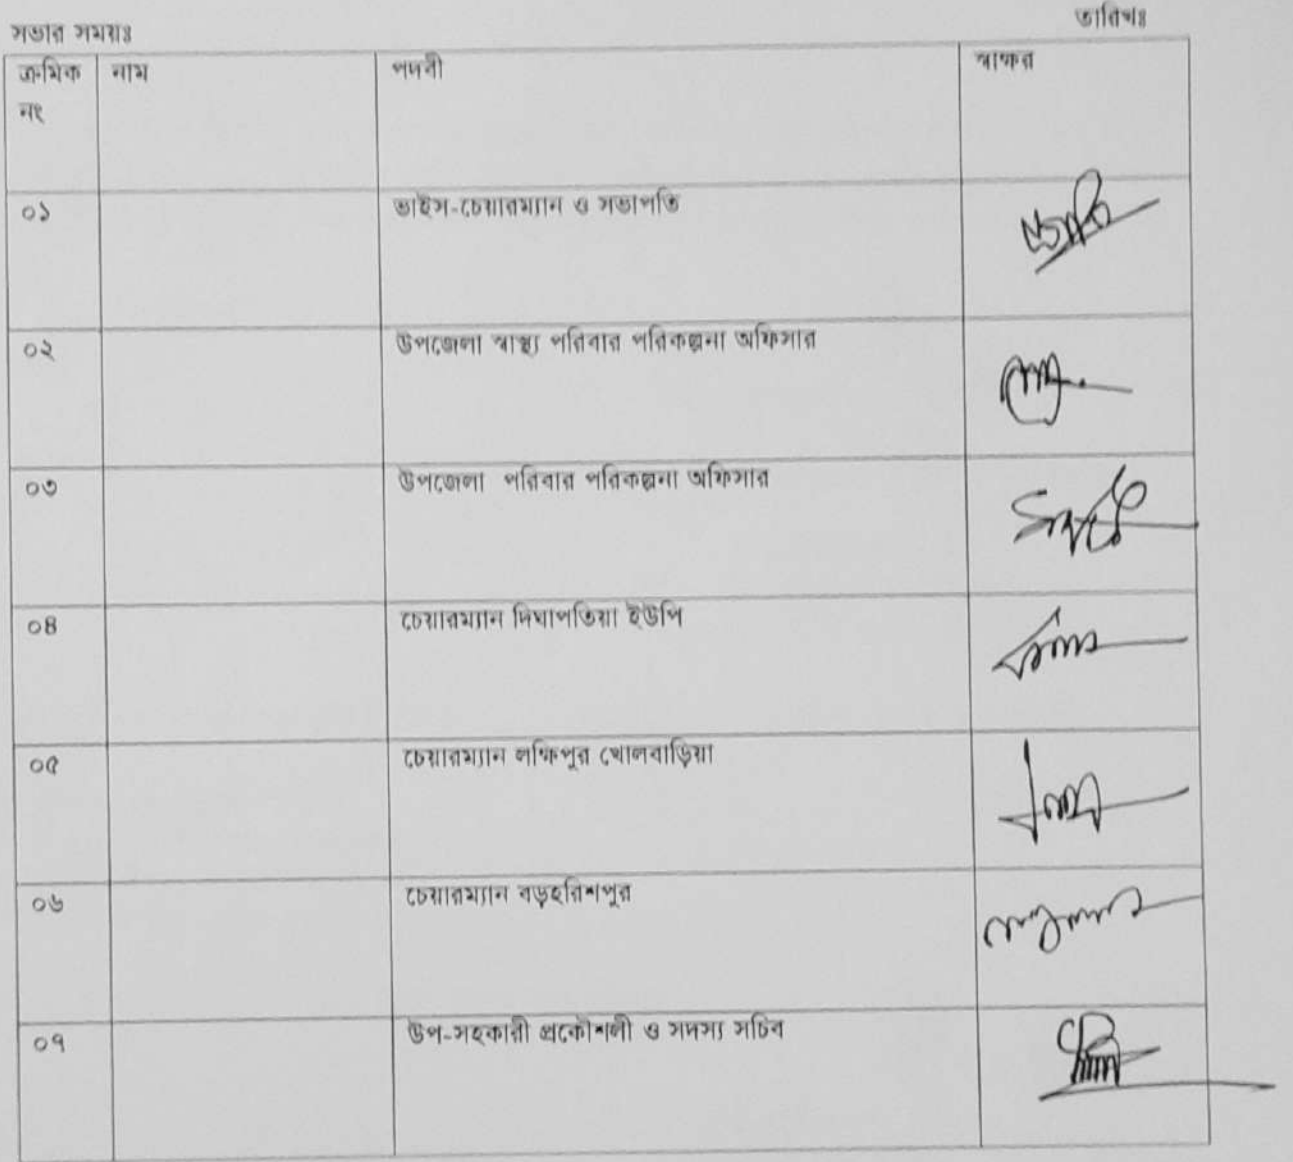 সভার সময়ঃ
তারিখঃ
ক্রমিক নাম পদবী স্বাক্ষর
নং
০১ ভাইস-চেয়ারম্যান ও সভাপতি
০২ উপজেলা স্বাস্থ্য পরিবার পরিকল্পনা অফিসার
০৩ উপজেলা পরিবার পরিকল্পনা অফিসার
০৪ চেয়ারম্যান দিঘাপতিয়া ইউপি
০৫ চেয়ারম্যান লক্ষিপুর খোলবাড়িয়া
০৬ চেয়ারম্যান বড়হরিশপুর
০৭ উপ-সহকারী প্রকৌশলী ও সদস্য সচিব